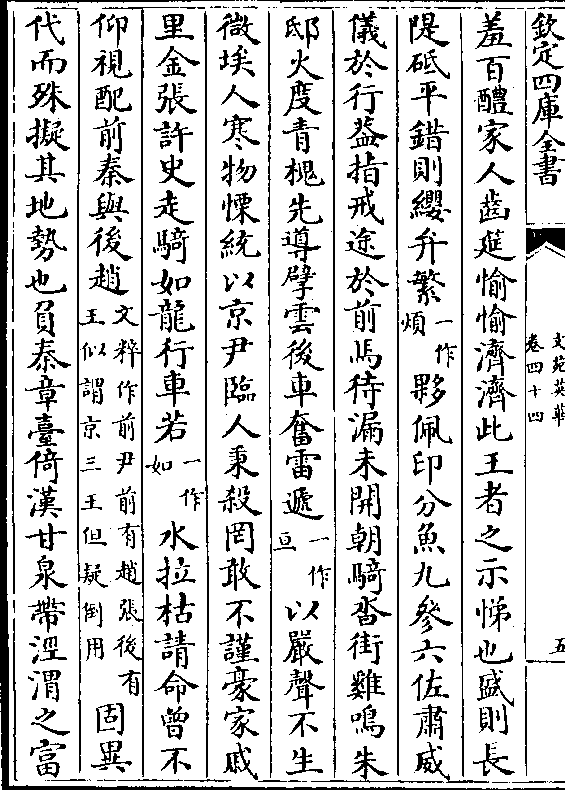 欽定四庫全書
文苑英華
卷四十四
五
羞百醴家人齒筵愉愉濟濟此王者之示悌也盛則長
隄砥平錯則纓弁繁一作煩夥佩印分魚九參六佐肅威
儀於行葢指戒途於前馬待漏未開朝騎沓街雞鳴朱
邸火度青槐先導擘雲後車奮雷遞一作亘以嚴聲不生
微埃人寒物慄統以京尹臨人秉殺罔敢不謹豪家戚
里金張許史走騎如龍行車若一作如水拉枯請命曾不
仰視配前秦與後趙文粹作前尹前有趙張後有王似謂京三王但疑倒用固異
代而殊擬其地勢也負秦章臺倚漢甘泉帶涇渭之富